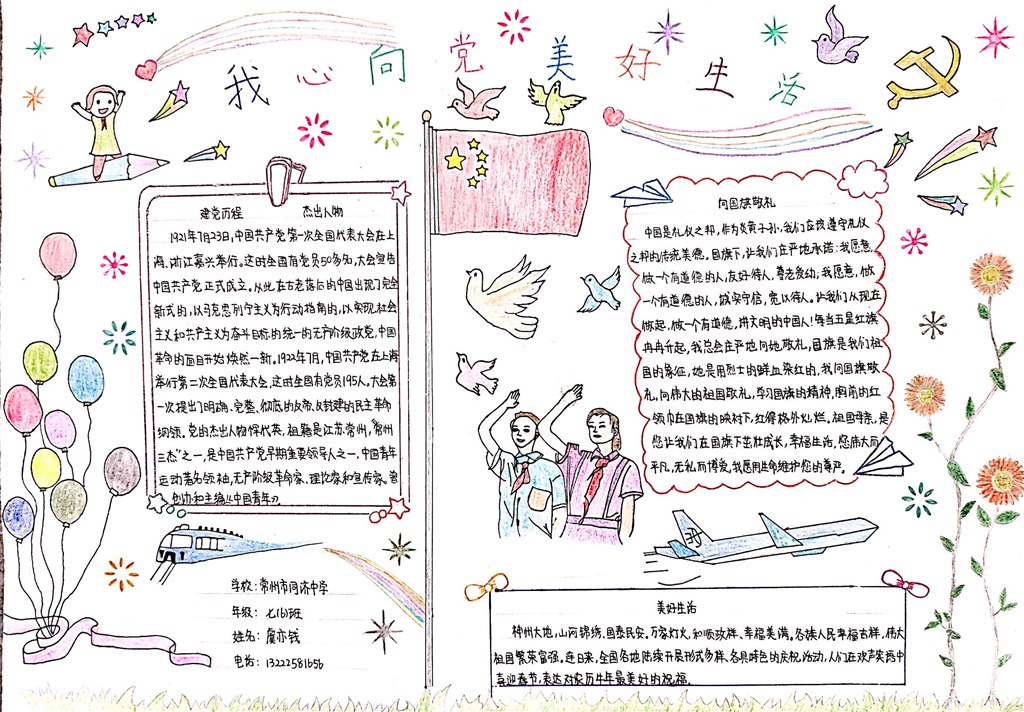 我心向党美好生活
建党历程 杰出人物
1921年7月23日,中国共产党第一次全国代表大会在上
海、浙江嘉兴举行。这时全国有党员50多名,大会宣告
中国共产党正式成立。从此在古老落后的中国出现了完全
新式的,以马克思列宁主义为行动指南的,以实现社会
主义和共产主义为奋斗目标的统一的无产阶级政党,中国
革命的面目开始焕然一新。1922年7月,中国共产党在上海
举行第二次全国代表大会,这时全国有党员195人。大会第
一次提出了明确、完整、彻底的反帝、反封建的民主革命
纲领。党的杰出人物恽代英,祖籍是江苏常州,“常州
三杰”之一,是中国共产党早期重要领导人之一,中国青年
运动著名领袖,无产阶级革命家、理论家和宣传家。曾
创办和主编《中国青年》
学校:常州市同济中学
年级:七(6)班
姓名:虞亦钱
电话:13222581656
向国旗敬礼
中国是礼仪之邦,作为炎黄子孙,我们应该遵守礼仪
之邦的传统美德。国旗下,让我们庄严地承诺:我愿意,
做一个有道德的人,友好待人,尊老爱幼,我愿意,做
一个有道德的人,诚实守信,宽以待人。让我们从现在
做起,做一个有道德,讲文明的中国人!每当五星红旗
冉冉升起,我总会庄严地向她敬礼,国旗是我们祖
国的象征,她是用烈士的鲜血染红的,我向国旗敬
礼,向伟大的祖国敬礼,学习国旗的精神,胸前的红
领巾在国旗的映衬下,红得格外灿烂,祖国母亲,是
您让我们在国旗下茁壮成长,幸福生活,您伟大而
平凡,无私而博爱,我愿用生命维护您的尊严。
美好生活
神州大地,山河锦绣、国泰民安。万家灯火,和顺致祥、幸福美满。各族人民幸福吉祥,伟大
祖国繁荣富强。连日来,全国各地陆续开展形式多样、各具特色的庆祝活动,人们在欢声笑语中
喜迎春节,表达对农历牛年最美好的祝福。